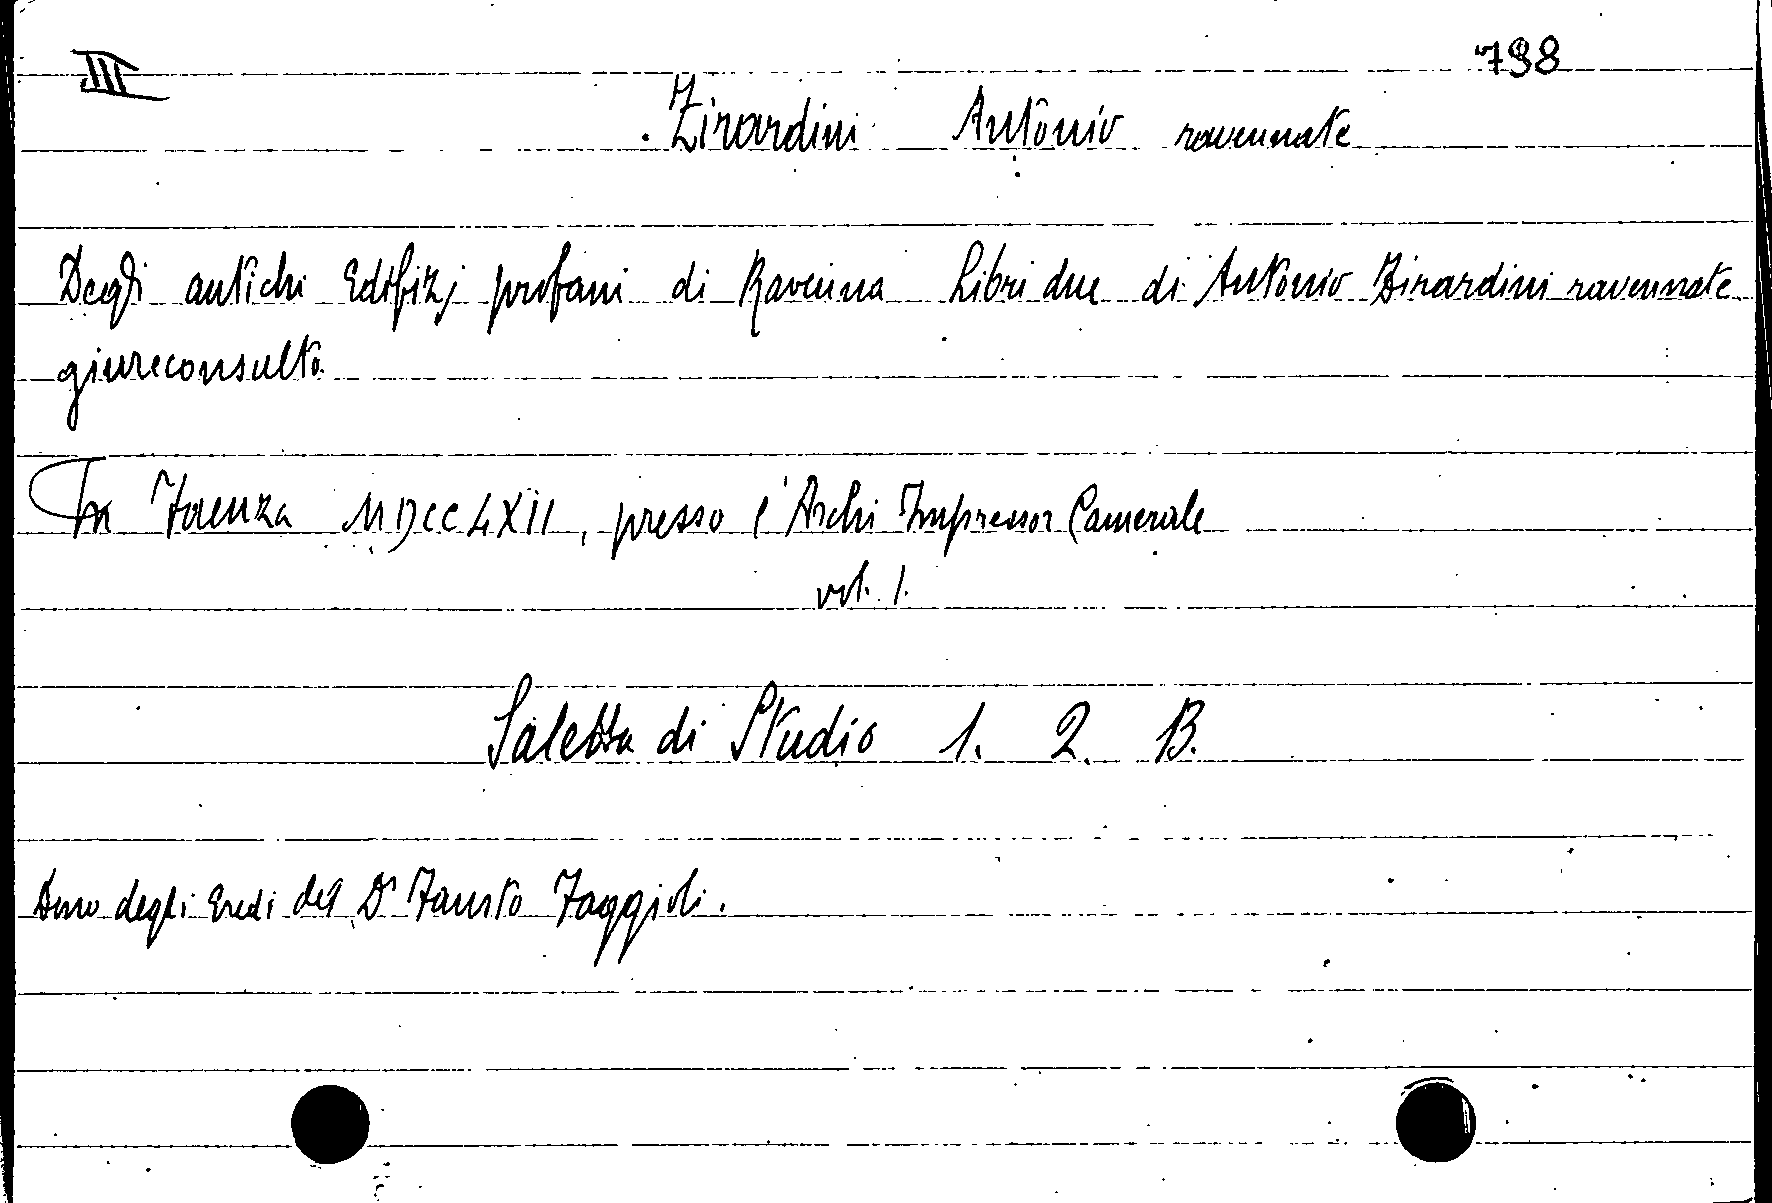 III
798
Zirardini Antonio ravennate
Degli antichi Edifizj profani di Ravenna Libri due di Antonio Zirardini ravennate
giureconsulto
In Faenza MDCCLXII, presso l'Archi Impressor Camerale
vol. 1.
Saletta di Studio 1. 2. B.
Dono degli Eredi del Dr Fausto Faggioli.